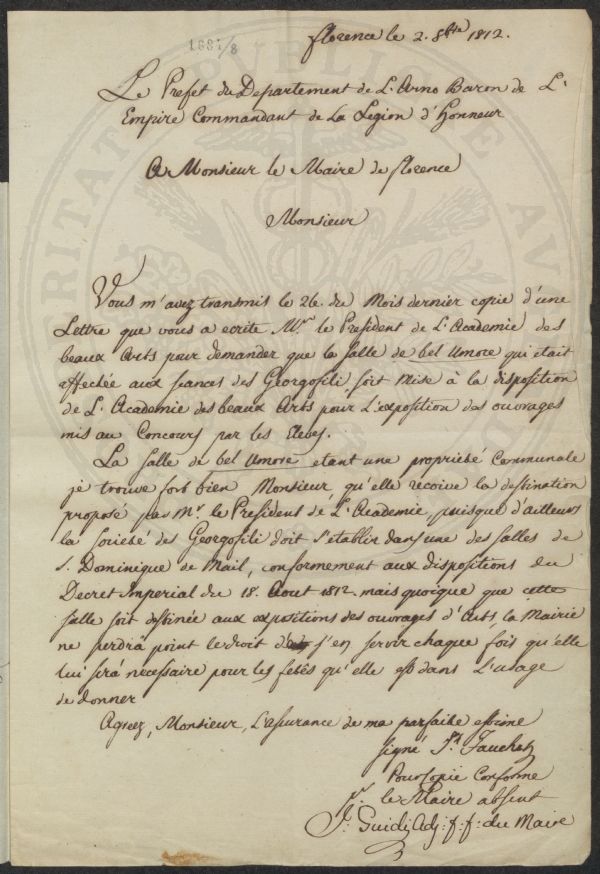 1881/8
florence le 2. 8bre 1812.
Le Prefet du Departement de L'Arno Baron de L'
Empire Commandant de La Legion d'honneur
A Monsieur le Maire de florence
Monsieur
Vous m'avez transmis le 26. du Mois dernier copie d'une
Lettre que vous a ecrite Mr. le President de L'Academie des
beaux Arts pour demander que la salle de bel Umore qui etait
affectée aux seances des Georgofili soit mise à la disposition
de L'Academie des beaux Arts pour l'exposition des ouvrages
mis au Concours par les Eleves.
La Salle de bel Umore etant une propriété Communale
je trouve fort bien Monsieur qu'elle recoive la destination
proposé par Mr. le President de L'Academie, puisque d'ailleurs
la Société des Georgofili doit s'etablir dans une des salles de
S. Dominique de Mail, conformement aux dispositions du
Decret Imperial du 18. Aout 1812. mais quoique que cette
salle soit destinée aux expositions des ouvrages d'Arts, la Mairie
ne perdrà point le droit de s'en servir chaque fois qu'elle
lui serà necessaire pour les fetes qu'elle est dans L'usage
de donner
Agreez, Monsieur, L'assurance de ma parfaite estime
signé Ph. Fauchet
Pour Copie Conforme
Pr. le Maire absent
Guidi Adj: f: f: du Maire
PUBLICAE
VERITATI